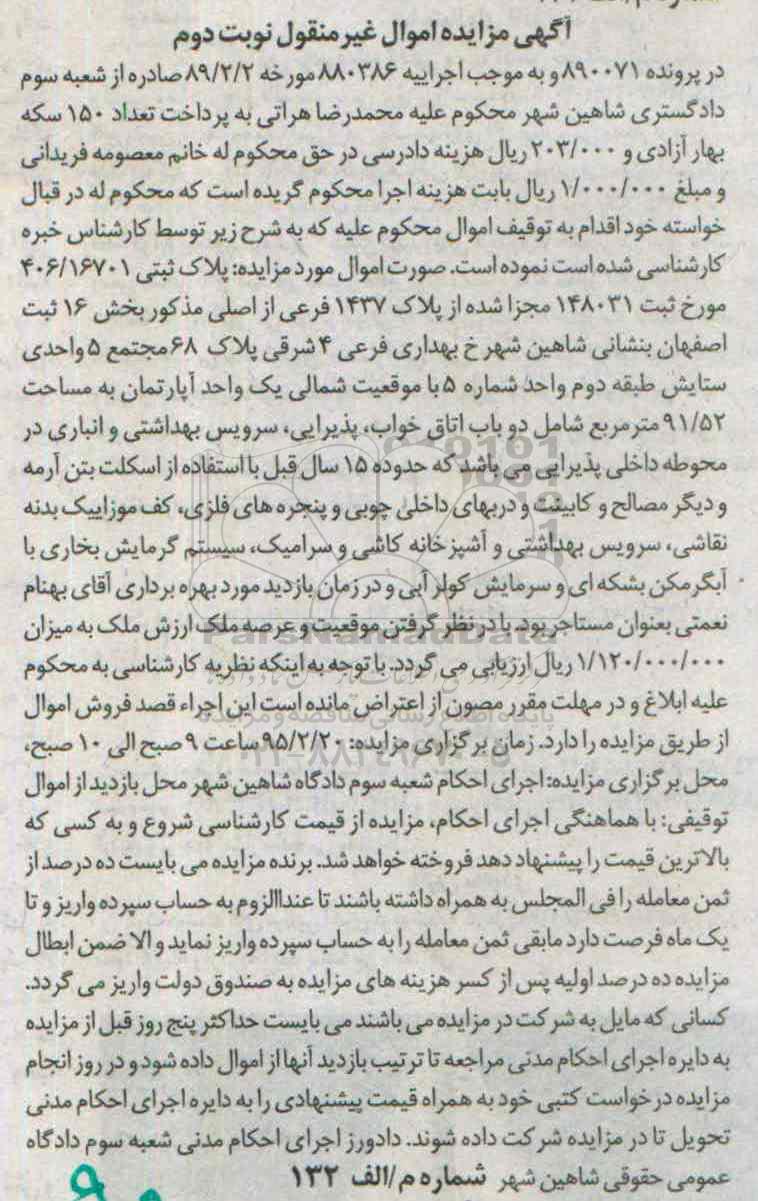 آگهی مزایده اموال غیر منقول نوبت دوم
در پرونده ۸۹۰۰۷۱ و به موجب اجراییه ۸۸۰۳۸۶ مورخه ۸۹/۲/۲ صادره از شعبه سوم
دادگستری شاهین شهر محکوم علیه محمدرضا هراتی به پرداخت تعداد ۱۵۰ سکه
بهار آزادی و ۲۰۳/۰۰۰ ریال هزینه دادرسی در حق محکوم له خانم معصومه فریدانی
و مبلغ ۱/۰۰۰/۰۰۰ ریال بابت هزینه اجرا محکوم گریده است که محکوم له در قبال
خواسته خود اقدام به توقیف اموال محکوم علیه که به شرح زیر توسط کارشناس خبره
کارشناسی شده است نموده است. صورت اموال مورد مزایده: پلاک ثبتی ۴۰۶/۱۶۷۰۱
مورخ ثبت ۱۴۸۰۳۱ مجزا شده از پلاک ۱۴۳۷ فرعی از اصلی مذکور بخش ۱۶ ثبت
اصفهان بنشانی شاهین شهر خ بهداری فرعی ۴ شرقی پلاک ۶۸ مجتمع ۵ واحدی
ستایش طبقه دوم واحد شماره ۵ با موقعیت شمالی یک واحد آپارتمان به مساحت
۹۱/۵۲ مترمربع شامل دو باب اتاق خواب، پذیرایی، سرویس بهداشتی و انباری در
محوطه داخلی پذیرایی می باشد که حدوده ۱۵ سال قبل با استفاده از اسکلت بتن آرمه
و دیگر مصالح و کابینت و دربهای داخلی چوبی و پنجره های فلزی، کف موزاییک بدنه
نقاشی، سرویس بهداشتی و آشپزخانه کاشی و سرامیک، سیستم گرمایش بخاری با
آبگرمکن بشکه ای و سرمایش کولر آبی و در زمان بازدید مورد بهره برداری آقای بهنام
نعمتی بعنوان مستاجر بود. با در نظر گرفتن موقعیت و عرصه ملک ارزش ملک به میزان
۱/۱۲۰/۰۰۰/۰۰۰ ریال ارزیابی می گردد. با توجه به اینکه نظریه کارشناسی به محکوم
علیه ابلاغ و در مهلت مقرر مصون از اعتراض مانده است این اجراء قصد فروش اموال
از طریق مزایده را دارد. زمان برگزاری مزایده: ۹۵/۲/۲۰ ساعت ۹ صبح الی ۱۰ صبح،
محل برگزاری مزایده: اجرای احکام شعبه سوم دادگاه شاهین شهر محل بازدید از اموال
توقیفی: با هماهنگی اجرای احکام، مزایده از قیمت کارشناسی شروع و به کسی که
بالاترین قیمت را پیشنهاد دهد فروخته خواهد شد. برنده مزایده می بایست ده درصد از
ثمن معامله را فی المجلس به همراه داشته باشند تا عنداالزوم به حساب سپرده واریز و تا
یک ماه فرصت دارد مابقی ثمن معامله را به حساب سپرده واریز نماید و الا ضمن ابطال
مزایده ده درصد اولیه پس از کسر هزینه های مزایده به صندوق دولت واریز می گردد.
کسانی که مایل به شرکت در مزایده می باشند می بایست حداکثر پنج روز قبل از مزایده
به دایره اجرای احکام مدنی مراجعه تا ترتیب بازدید آنها از اموال داده شود و در روز انجام
مزایده درخواست کتبی خود به همراه قیمت پیشنهادی را به دایره اجرای احکام مدنی
تحویل تا در مزایده شرکت داده شوند. دادورز اجرای احکام مدنی شعبه سوم دادگاه
عمومی حقوقی شاهین شهر شماره م/الف ۱۳۲